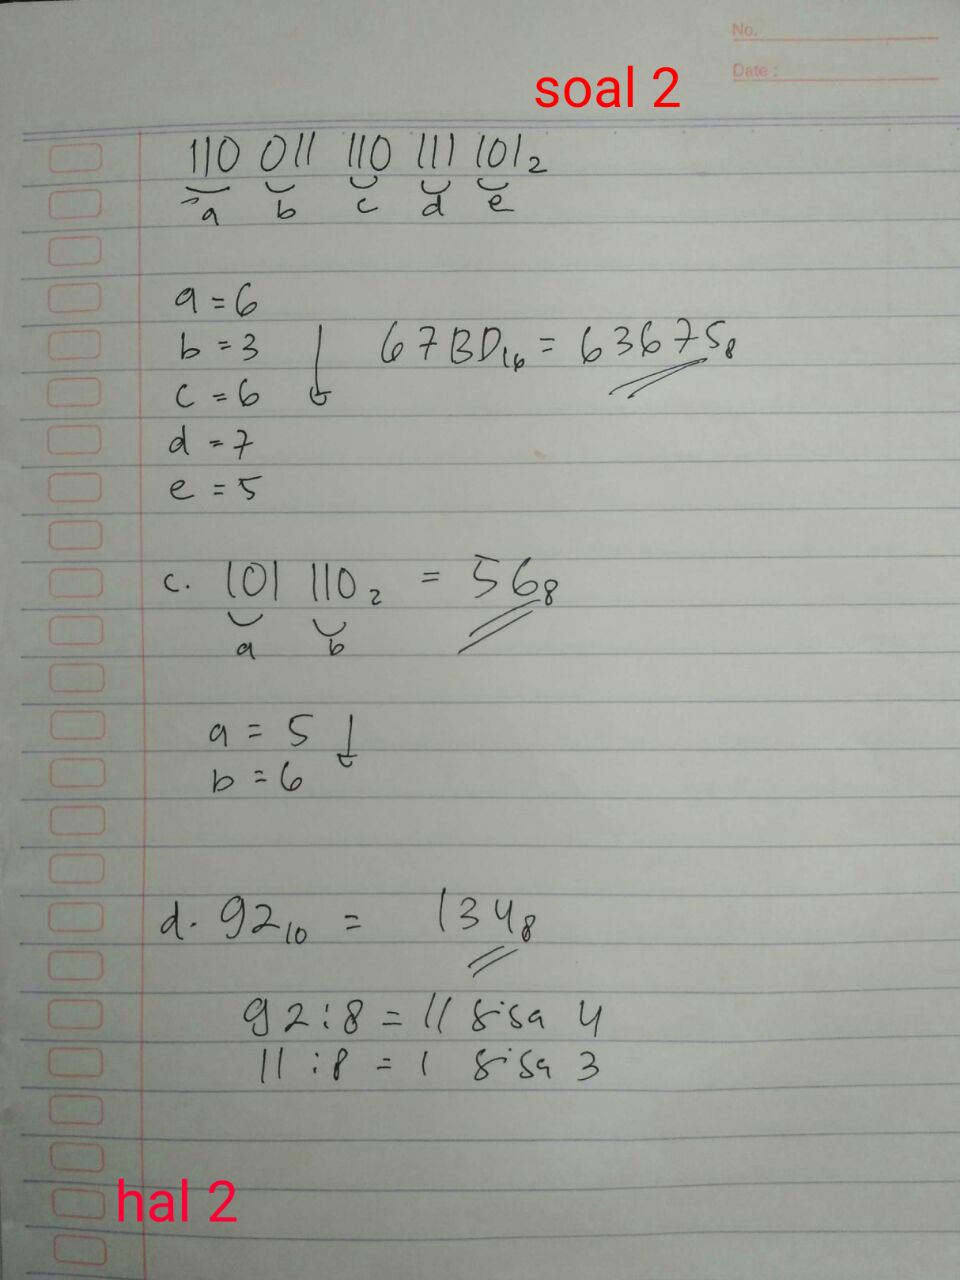 No.
Date :
soal 2
110 011 110 111 101₂
a b c d e
a = 6
b = 3
c = 6
d = 7
e = 5
67BD₁₆ = 63675₈
c. 101 110₂ = 56₈
a b
a = 5
b = 6
d. 92₁₀ = 134₈
92 : 8 = 11 sisa 4
11 : 8 = 1 sisa 3
hal 2